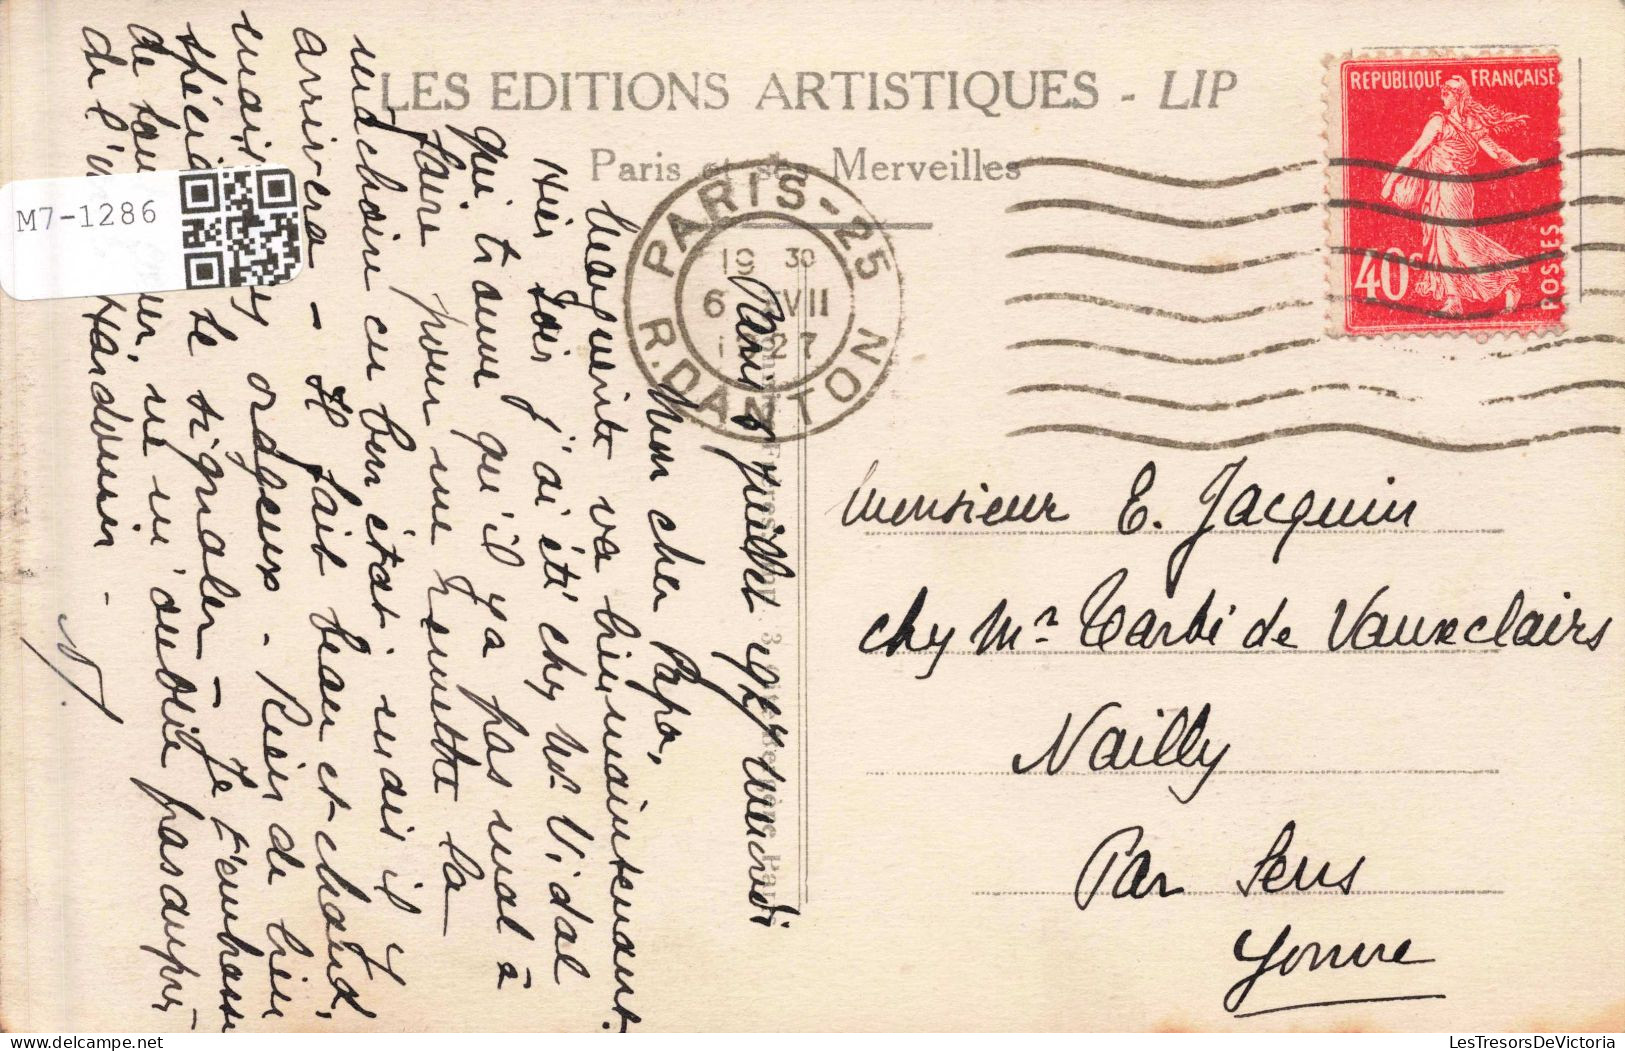 LES EDITIONS ARTISTIQUES - LIP
Paris et ses Merveilles
REPUBLIQUE FRANÇAISE
40c
POSTES
PARIS-25
R.DANTON
19 30
6 VII
27
M7-1286
Paris 6 juillet 1927 mercredi
Mon cher Papa,
Marguerite va bien maintenant.
Hier soir j'ai été chez Mr. Vidal
qui trouve qu'il y a pas mal à
faire pour me remettre la
machoire en bon état. mais il y
arrivera - Il fait beau et chaud,
mais orageux. Rien de bien
le signaler - Je t'embrasse
de tout ne m'oublie pas auprès
de l' Hardouin -
Monsieur E. Jacquin
chez Mr Tarbé de Vauxclairs
Nailly
Par Sens
Yonne
LesTresorsDeVictoria